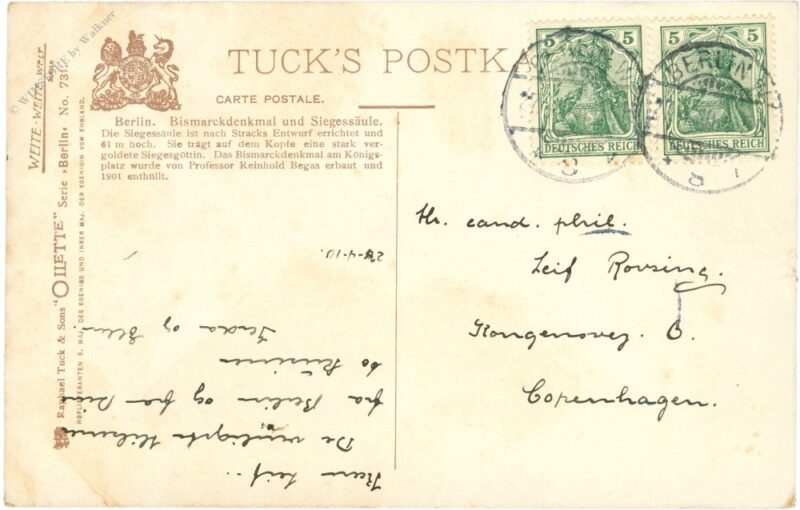 © WIEN by Walkner
TUCK'S POSTKA
CARTE POSTALE.
Berlin. Bismarckdenkmal und Siegessäule.
Die Siegessäule ist nach Stracks Entwurf errichtet und
61 m hoch. Sie trägt auf dem Kopfe eine stark ver-
goldete Siegesgöttin. Das Bismarckdenkmal am Königs-
platz wurde von Professor Reinhold Begas erbaut und
1901 enthüllt.
WEITE-WEITE-WELT
Raphael Tuck & Sons' "OILETTE" Serie »Berlin« No. 731
HOFLIEFERANTEN S. MAJ. DES KOENIGS UND IHRER MAJ. DER KOENIGIN VON ENGLAND.
5 5
5 5
DEUTSCHES REICH
DEUTSCHES REICH
BERLIN
Hr. cand. phil.
Leif Rovsing.
Kongensvej 6.
Copenhagen.
Kære Leif..
De venligste Hilsener
fra Berlin og fra Din
to Kusiner
og
-4-10.